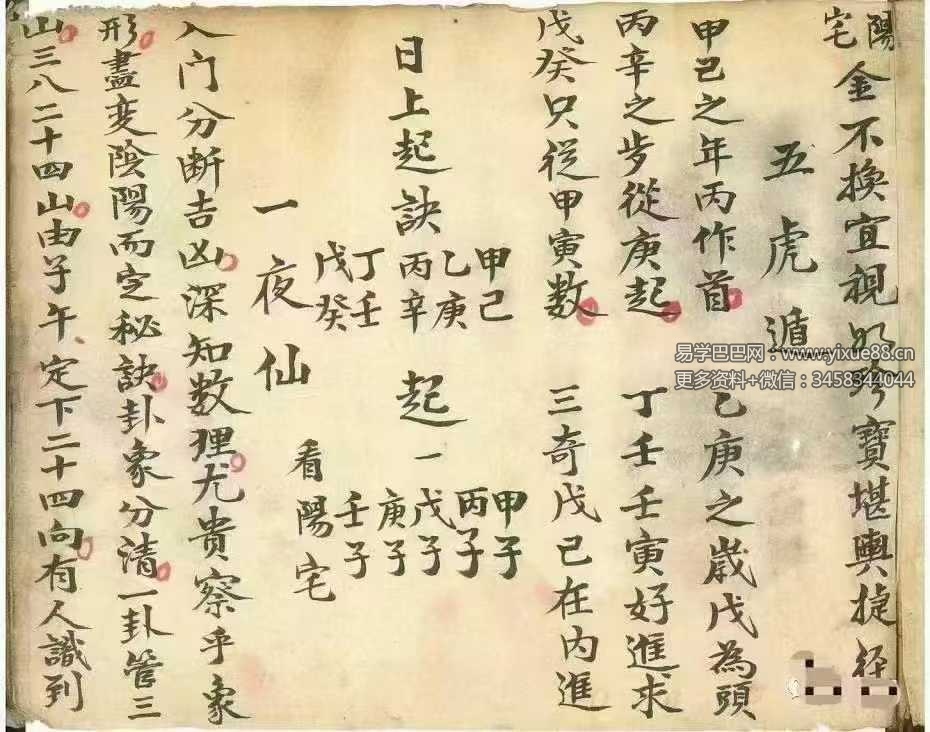 陽宅金不換宜視如珍寶堪輿捷徑
五虎遁
甲己之年丙作首 乙庚之歲戊為頭
丙辛之步從庚起 丁壬壬寅好進求
戊癸只從甲寅數 三奇戊己在內進
日上起訣
甲己 乙庚 丙辛 丁壬 戊癸
起一
甲子 丙子 戊子 庚子 壬子
一夜仙 看陽宅
入门分断吉凶深知数理尤贵察乎象
形盡变陰陽而定秘訣卦象分清一卦管三
山三八二十四山由子午定下二十四向有人識到
易学巴巴网：www.yixue88.cn
更多资料+微信：3458344044